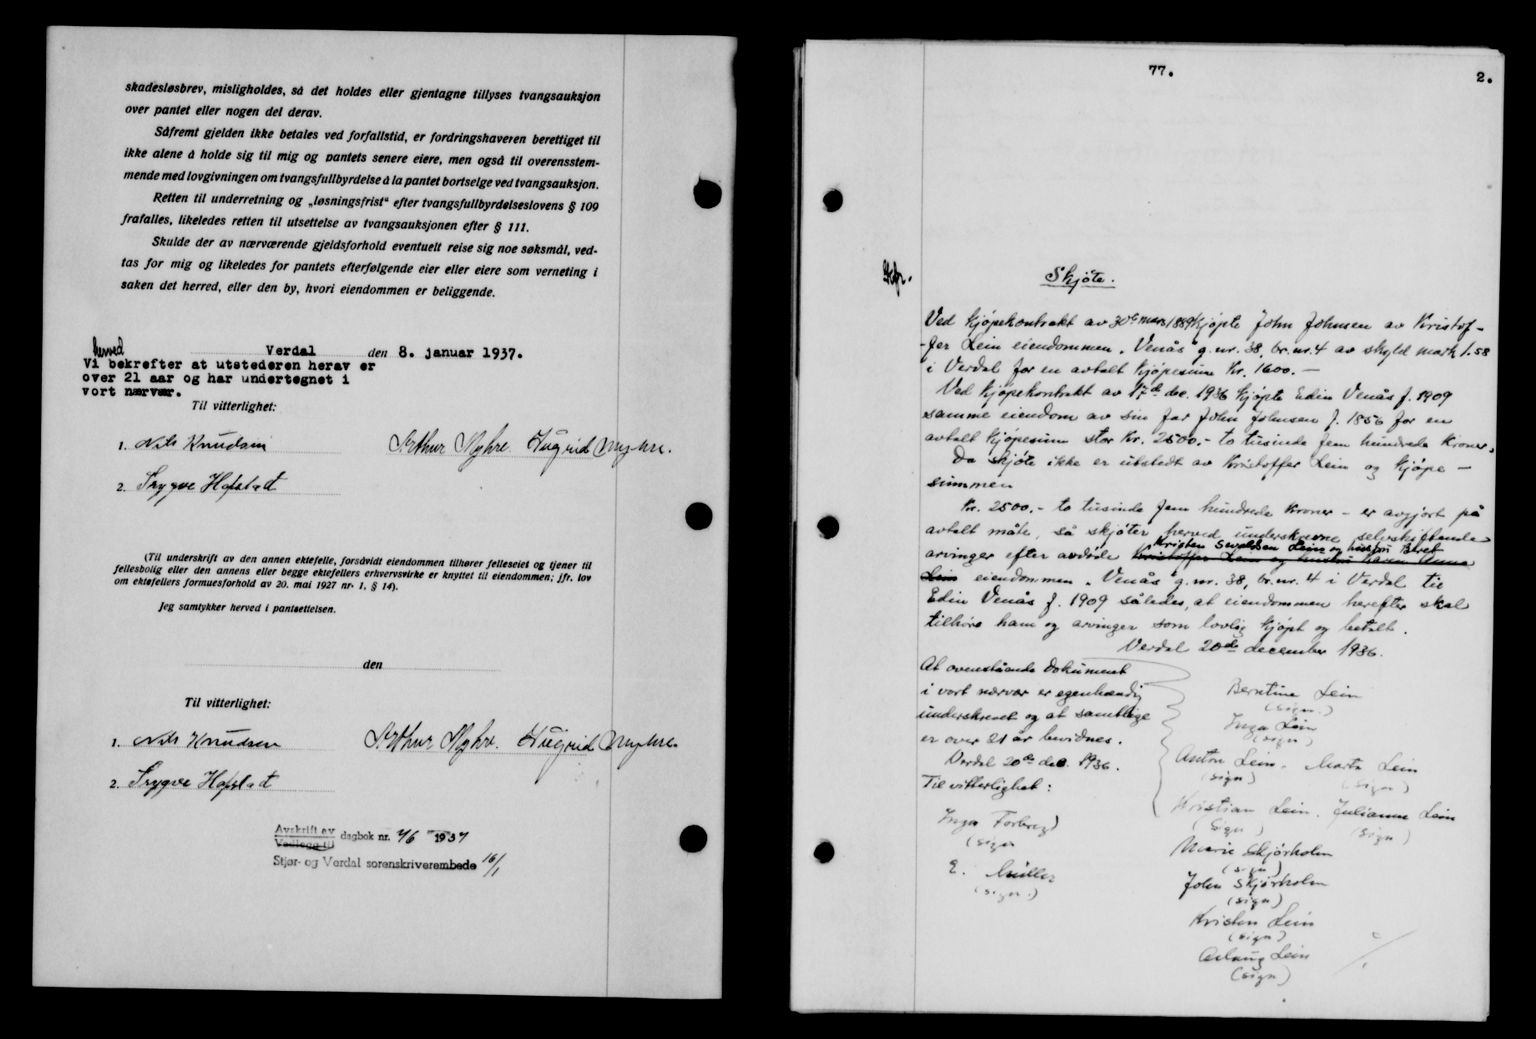 skadesløsbrev, misligholdes, så det holdes eller gjentagne tillyses tvangsauksjon
over pantet eller nogen del derav.
Såfremt gjelden ikke betales ved forfallstid, er fordringshaveren berettiget til
ikke alene å holde sig til mig og pantets senere eiere, men også til overensstem-
mende med lovgivningen om tvangsfullbyrdelse å la pantet bortselge ved tvangsauksjon.
Retten til underretning og „løsningsfrist“ efter tvangsfullbyrdelseslovens § 109
frafalles, likeledes retten til utsettelse av tvangsauksjonen efter § 111.
Skulde der av nærværende gjeldsforhold eventuelt reise sig noe søksmål, ved-
tas for mig og likeledes for pantets efterfølgende eier eller eiere som verneting i
saken det herred, eller den by, hvori eiendommen er beliggende.
Verdal den 8. januar 1937.
herved
Vi bekrefter at utstederen herav er
over 21 aar og har undertegnet i
vort nærvær.
Til vitterlighet:
1. Nils Knudsen Arthur Myhre. Ingrid Myhre.
2. Trygve Hofstad
(Til underskrift av den annen ektefelle, forsåvidt eiendommen tilhører felleseiet og tjener til
fellesbolig eller den annens eller begge ektefellers erhvervsvirke er knyttet til eiendommen; jfr. lov
om ektefellers formuesforhold av 20. mai 1927 nr. 1, § 14).
Jeg samtykker herved i pantsettelsen.
den
Til vitterlighet:
1. Nils Knudsen Arthur Myhre. Ingrid Myhre.
2. Trygve Hofstad
Avskrift av
Vedlegg til
dagbok nr. 76 1937
Stjør- og Verdal sorenskriverembede 16/1
77. 2.
Skjøte.
Ved kjøpekontrakt av 30te mars 1889 kjøpte John Johnsen av Kristof-
-fer Lein eiendommen „Venås“ g.nr. 38, br.nr. 4 av skyld mark 1.58
i Verdal for en avtalt kjøpesum kr. 1600.—
Ved kjøpekontrakt av des. 1936 kjøpte Edin Venås f. 1909
samme eiendom av sin far John Johnsen f. 1856 for en
avtalt kjøpesum stor kr. 2500.- to tusinde fem hundrede kroner.
Da skjøte ikke er utstedt av Kristoffer Lein og kjøpe-
summen
kr. 2500.- to tusinde fem hundrede kroner - er avgjort på
avtalt måte, så skjøter herved underskrevne selvskiftende
Kristen Sevaldsen Lein og hustru Beret
arvinger efter avdøde Kristoffer Lein og hustru Karen Anna
Lein eiendommen „Venås“ g.nr. 38, br.nr. 4 i Verdal til
Edin Venås f. 1909 således, at eiendommen herefter skal
tilhøre ham og arvinger som lovlig kjøpt og betalt.
Verdal 20de december 1936.
At ovenstående dokument
i vort nærvær er egenhændig
underskrevet og at samtlige
er over 21 år bevidnes.
Verdal 20de des. 1936.
Til vitterlighet:
Inga Forbregd
(sign
E. Müller
(sign.)
Berntine Lein
(sign.)
Inga Lein
(sign)
Anton Lein. Marta Lein
(sign) (sign)
Kristian Lein. Julianne Lein
(sign) (sign)
Marie Skjørholm
(sign)
John Skjørholm
(sign)
Kristen Lein
(sign)
Aslaug Lein
(sign)